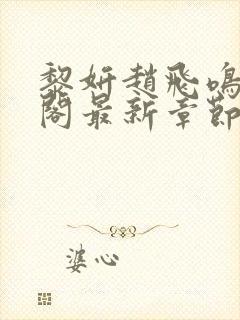 黎妍趙飛鳴
閣最新章節
婆心